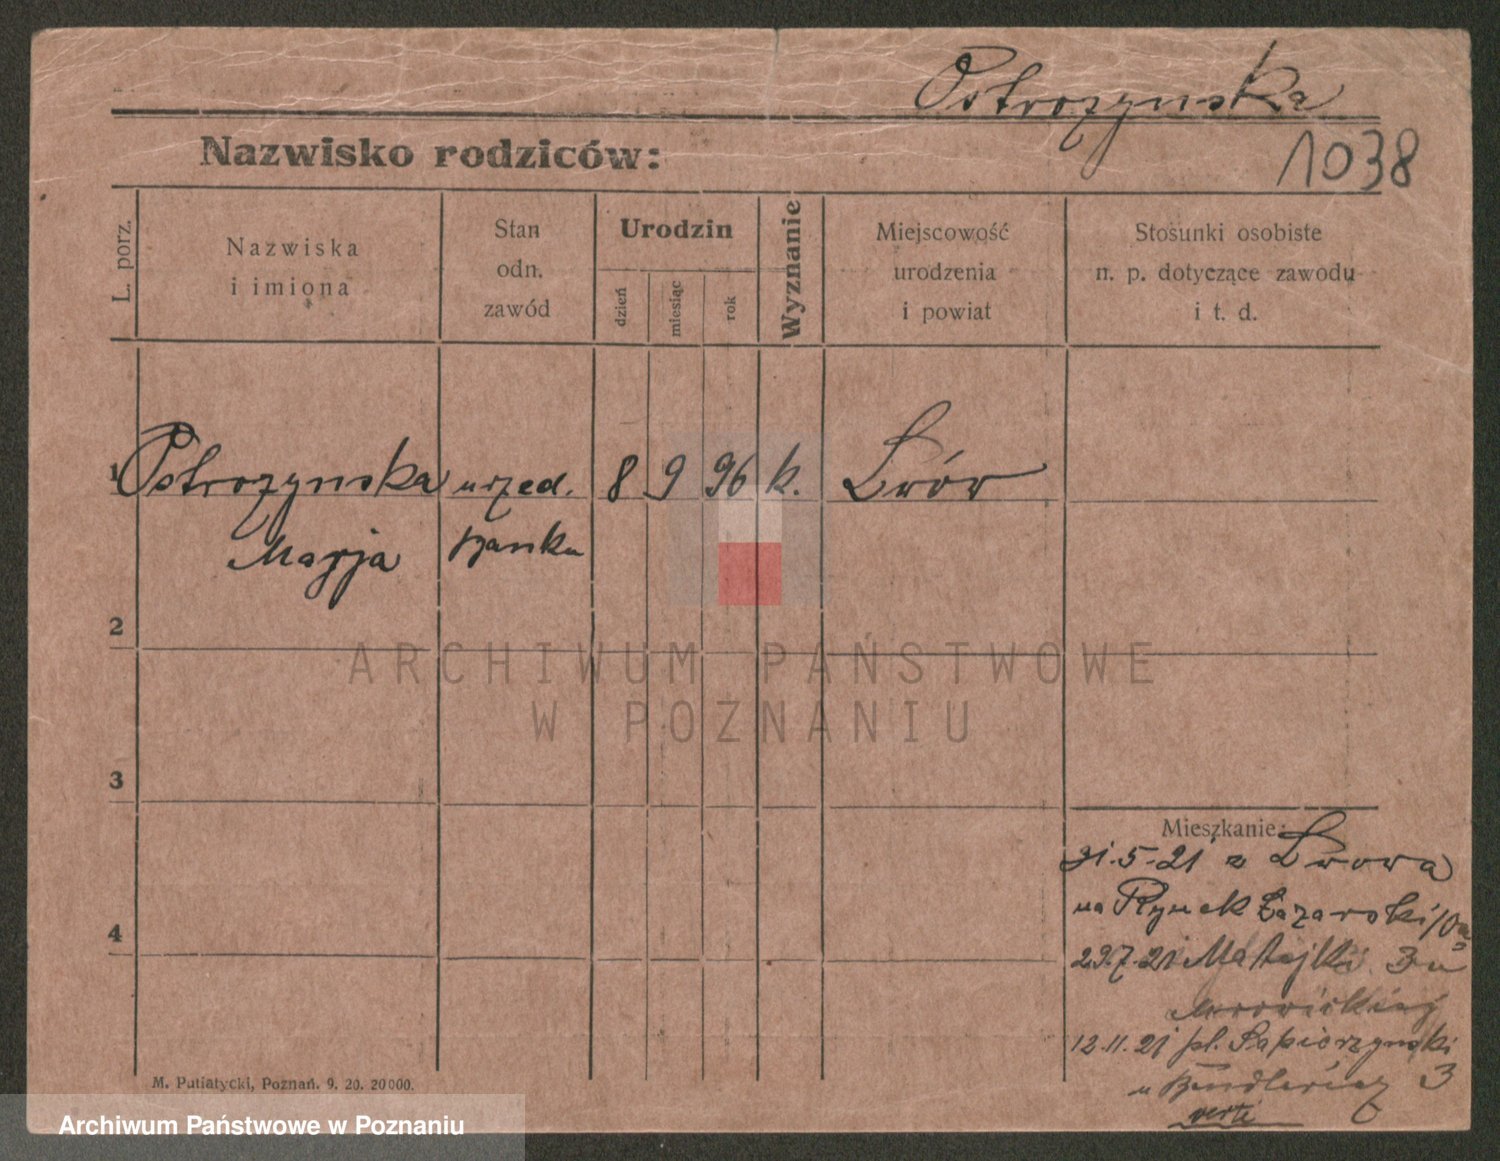 Ostrozynska
Nazwisko rodziców:
1038
L. porz.
Nazwiska
i imiona
Stan
odn.
zawód
Urodzin
dzień
miesiąc
rok
Wyznanie
Miejscowość
urodzenia
i powiat
Stosunki osobiste
n. p. dotyczące zawodu
i t. d.
1 Ostrozynska urzęd. 8 9 96 k. Lwów
Maryja banku
2
ARCHIWUM PAŃSTWOWE
W POZNANIU
3
4
Mieszkanie:
31.5.21 z Lwowa
na Rynek Łazarski
29.7.21 Matejki 3 u
12.11.21 pl. Sapieżyński
u 3
verte
M. Putiatycki, Poznań. 9. 20. 20000.
Archiwum Państwowe w Poznaniu